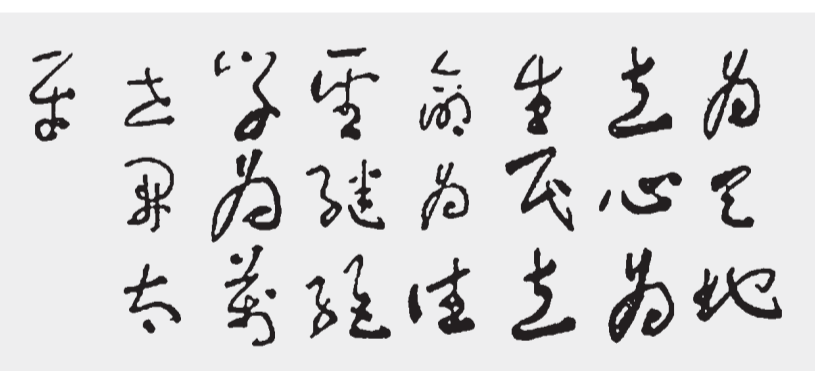 為天地
立心為
生民立
命為往
聖繼絕
學為萬
世開太
平